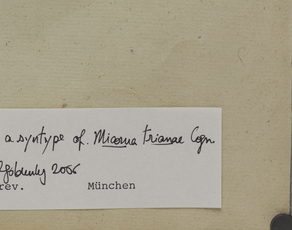 a syntype of. Miconia trianae Cogn
2006
rev. München